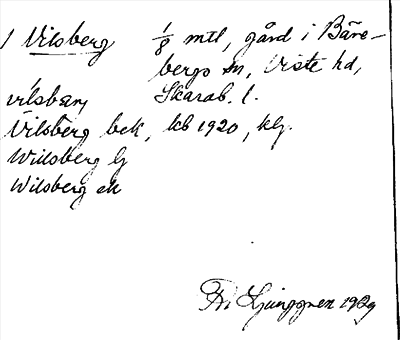 1 Vilsberg 1/8 mtl, gård i Bäre-
bergs sn, Viste hd,
vilsbärj Skarab. l.
Vilsberg bek, kb 1920, klj.
Willsberg Gj
Wilsberg ek
Fr. Ljunggren 1929